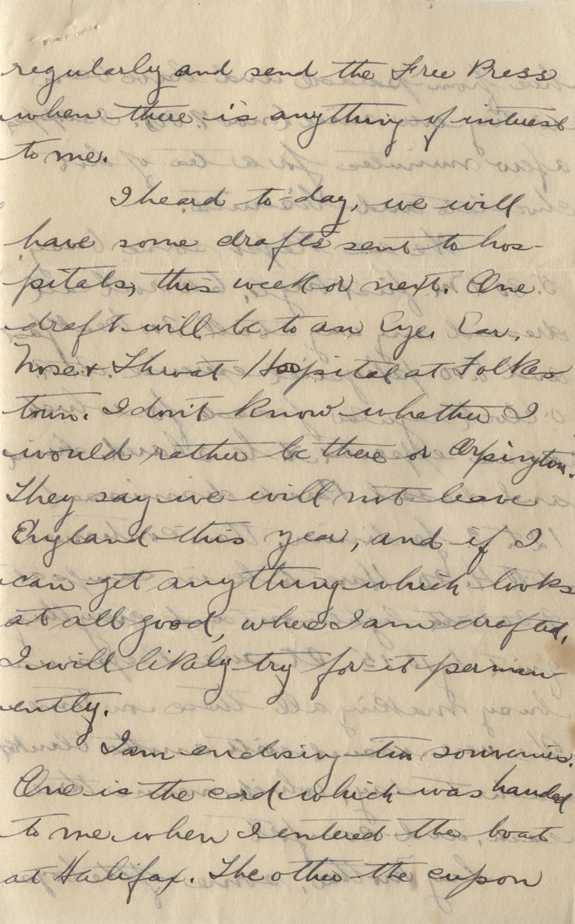 regularly and send the Free Press
when there is anything of interest
to me.
I heard to-day, we will
have some drafts sent to hos-
pitals, this week or next. One
draft will be to an Eye, Ear,
Nose & Throat Hospital at Folkes
town. I don't know whether I
would rather be there or Orpington.
They say we will not leave
England this year, and if I
can get anything which looks
at all good, where I am drafted,
I will likely try for it perman
ently.
I am enclosing two souvenirs.
One is the card which was handed
to me when I entered the boat
at Halifax. The other the cupon